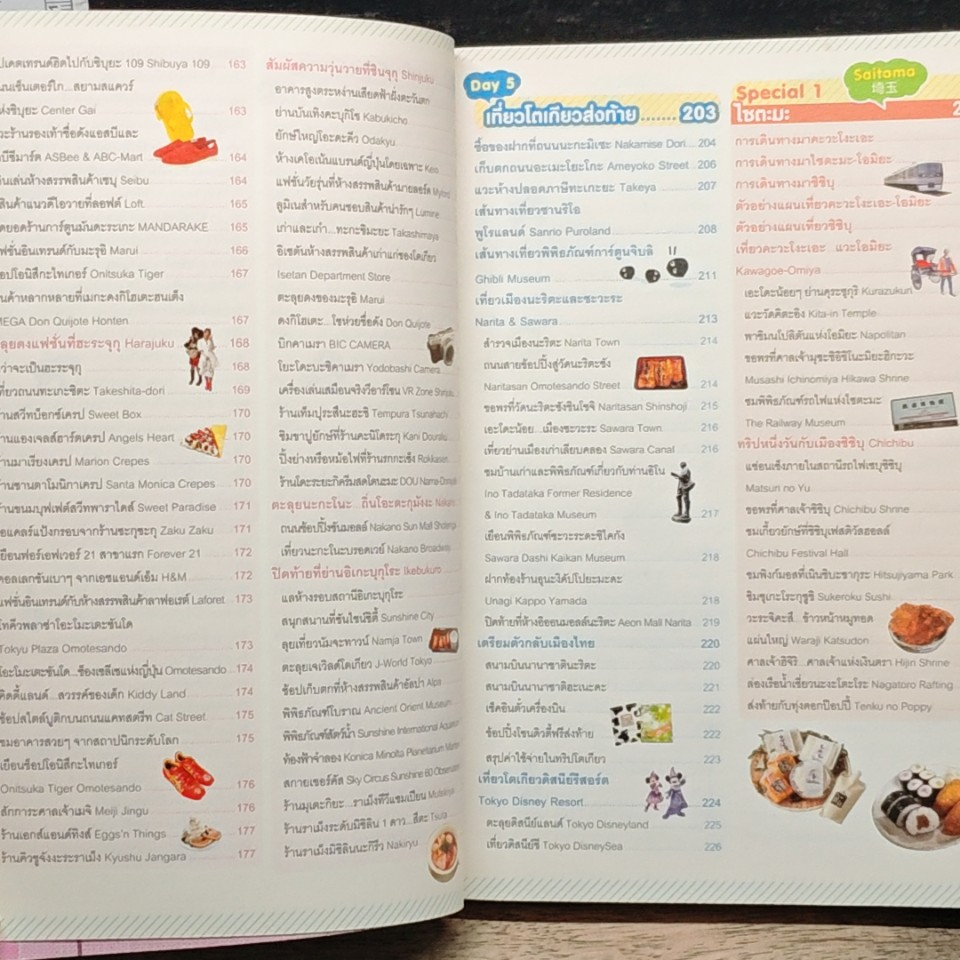 ปเดตเทรนด์ฮิตไปกับชิบุยะ 109 Shibuya 109 163
นนเซ็นเตอร์ไก...สยามสแควร์
ห่งชิบุยะ Center Gai 163
วะร้านรองเท้าชื่อดังแอสบีและ
บีซีมาร์ต ASBee & ABC-Mart 164
ดินเล่นห้างสรรพสินค้าเซบุ Seibu 164
สินค้าแนวดีไอวายที่ลอฟต์ Loft 165
ดยอดร้านการ์ตูนมันดะระเกะ MANDARAKE 165
ฟชั่นอินเทรนด์กับมะรุอิ Marui 166
อปโอนิสึกะไทเกอร์ Onitsuka Tiger 167
นค้าหลากหลายที่เมกะดงกิโฮเตะฮนเต็ง
MEGA Don Quijote Honten 167
ลุยดงแฟชั่นที่ฮะระจุกุ Harajuku 168
ว่าจะเป็นฮะระจุกุ 168
ที่ยวถนนทะเกะชิตะ Takeshita-dori 169
านสวีทบ็อกซ์เครป Sweet Box 170
านแองเจลส์ฮาร์ตเครป Angels Heart 170
านมาเรียงเครป Marion Crepes 170
านซานตาโมนิกาเครป Santa Monica Crepes 170
านขนมบุฟเฟต์สวีทพาราไดส์ Sweet Paradise 171
อแคลร์แป้งกรอบจากร้านซะกุซะกุ Zaku Zaku 171
ยือนฟอร์เอฟเวอร์ 21 สาขาแรก Forever 21 172
คอลเลกชันเบาๆ จากเอชแอนด์เอ็ม H&M 172
แฟชั่นอินเทรนด์กับห้างสรรพสินค้าลาฟอเรต์ Laforet 173
โทคิวพลาซ่าโอะโมะเตะซันโด
Tokyu Plaza Omotesando 173
โอะโมะเตะซันโด...ช็องเซลีเซแห่งญี่ปุ่น Omotesando 174
คิดดี้แลนด์...สวรรค์ของเด็ก Kiddy Land 174
ช้อปสไตล์บูติกบนถนนแคทสตรีท Cat Street 175
ชมอาคารสวยๆ จากสถาปนิกระดับโลก 175
เยือนช็อปโอนิสึกะไทเกอร์
Onitsuka Tiger Omotesando 176
สักการะศาลเจ้าเมจิ Meiji Jingu 176
ร้านเอกส์แอนด์ทิงส์ Eggs'n Things 177
ร้านคิวชูจังงะระราเม็ง Kyushu Jangara 177
สัมผัสความวุ่นวายที่ชินจุกุ Shinjuku
อาคารสูงตระหง่านเฮียดฟ้าฝั่งตะวันตก
ย่านบันเทิงคะบุกิโช Kabukicho
ยักษ์ใหญ่โอะดะคิว Odakyu
ห้างเคโอเน้นแบรนด์ญี่ปุ่นโดยเฉพาะ Keio
แฟชั่นวัยรุ่นที่ห้างสรรพสินค้ามายลอร์ด Mylord
ลูมิเนสำหรับคนชอบสินค้าน่ารักๆ Lumine
เก่าและเก๋า...ทะกะชิมะยะ Takashimaya
อิเซตันห้างสรรพสินค้าเก่าแก่ของโตเกียว
Isetan Department Store
ตะลุยดงของมะรุอิ Marui
ดงกิโฮเตะ...โชห่วยชื่อดัง Don Quijote
บิกคาเมรา BIC CAMERA
โยะโดะบะชิคาเมรา Yodobashi Camera
เครื่องเล่นเสมือนจริงวีอาร์โซน VR Zone Shinjuku
ร้านเท็มปุระสึนะฮะชิ Tempura Tsunahachi
ชิมขาปูยักษ์ที่ร้านคะนิโดระกุ Kani Douraku
ปิ้งย่างหรือหม้อไฟที่ร้านรกกะเซ็ง Rokkasen
ร้านโดะระยะกิครีมสดโดนะมะ DOU Nama-Dorayaki
ตะลุยนะกะโนะ ถิ่นโอะตะกุมังงะ Nakano
ถนนช้อปปิ้งซันมอลล์ Nakano Sun Mall Shotengai
เที่ยวนะกะโนะบรอดเวย์ Nakano Broadway
ปิดท้ายที่ย่านอิเกะบุกุโระ Ikebukuro
แลห้างรอบสถานีอิเกะบุกุโระ
สนุกสนานที่ซันไชน์ซิตี้ Sunshine City
ลุยเที่ยวนัมจะทาวน์ Namja Town
ตะลุยเจเวิลด์โตเกียว J-World Tokyo
ช้อปเก็บตกที่ห้างสรรพสินค้าอัลปา Alpa
พิพิธภัณฑ์โบราณ Ancient Orient Museum
พิพิธภัณฑ์สัตว์น้ำ Sunshine International Aquarium
ท้องฟ้าจำลอง Konica Minolta Planetarium Manten
สกายเซอร์คัส Sky Circus Sunshine 60 Observatory
ร้านมุเตะกิยะ...ราเม็งทีวีแชมเปียน Mutekiya
ร้านราเม็งระดับมิชิลิน 1 ดาว...สึตะ Tsuta
ร้านราเม็งมิชิลินนะกิริว Nakiryu
Day 5
เที่ยวโตเกียวส่งท้าย ....... 203
ซื้อของฝากที่ถนนนะกะมิเซะ Nakamise Dori 204
เก็บตกถนนอะเมะโยะโกะ Ameyoko Street 206
แวะห้างปลอดภาษีทะเกะยะ Takeya 207
เส้นทางเที่ยวซานริโอ
พูโรแลนด์ Sanrio Puroland 208
เส้นทางเที่ยวพิพิธภัณฑ์การ์ตูนจิบลิ
Ghibli Museum 211
เที่ยวเมืองนะริตะและซะวะระ
Narita & Sawara 213
สำรวจเมืองนะริตะ Narita Town 214
ถนนสายช้อปปิ้งสู่วัดนะริตะซัง
Naritasan Omotesando Street 214
ขอพรที่วัดนะริตะซังชินโชจิ Naritasan Shinshoji 215
เอะโดะน้อย...เมืองซะวะระ Sawara Town 216
เที่ยวย่านเมืองเก่าเลียบคลอง Sawara Canal 216
ชมบ้านเก่าและพิพิธภัณฑ์เกี่ยวกับท่านอิโน
Ino Tadataka Former Residence
& Ino Tadataka Museum 217
เยือนพิพิธภัณฑ์ซะวะระดะชิไคกัง
Sawara Dashi Kaikan Museum 218
ฝากท้องร้านอุนะงิคัปโปยะมะดะ
Unagi Kappo Yamada 218
ปิดท้ายที่ห้างอิออนมอลล์นะริตะ Aeon Mall Narita 219
เตรียมตัวกลับเมืองไทย 220
สนามบินนานาชาตินะริตะ 220
สนามบินนานาชาติฮะเนะดะ 221
เช็คอินตั๋วเครื่องบิน 222
ช้อปปิ้งโซนดิวตี้ฟรีส่งท้าย 222
สรุปค่าใช้จ่ายในทริปโตเกียว 223
เที่ยวโตเกียวดิสนีย์รีสอร์ต
Tokyo Disney Resort 224
ตะลุยดิสนีย์แลนด์ Tokyo Disneyland 225
เที่ยวดิสนีย์ซี Tokyo DisneySea 226
Special 1
Saitama
埼玉
ไซตะมะ 2
การเดินทางมาคะวะโงะเอะ
การเดินทางมาไซตะมะ-โอมิยะ
การเดินทางมาชิชิบุ
ตัวอย่างแผนเที่ยวคะวะโงะเอะ-โอมิยะ
ตัวอย่างแผนเที่ยวชิชิบุ
เที่ยวคะวะโงะเอะ แวะโอมิยะ
Kawagoe-Omiya
เอะโดะน้อยๆ ย่านคุระซุกุริ Kurazukuri
แวะวัดคิตะอิง Kita-in Temple
พาชิมนโปลิตันแห่งโอมิยะ Napolitan
ขอพรที่ศาลเจ้ามุซะชิอิชิโนะมิยะฮิกะวะ
Musashi Ichinomiya Hikawa Shrine
ชมพิพิธภัณฑ์รถไฟแห่งไซตะมะ
The Railway Museum
ทริปหนึ่งวันกับเมืองชิชิบุ Chichibu
แช่ออนเซ็งภายในสถานีรถไฟเซบุชิชิบุ
Matsuri no Yu
ขอพรที่ศาลเจ้าชิชิบุ Chichibu Shrine
ชมเกี้ยวยักษ์ที่ชิชิบุเฟสติวัลฮอลล์
Chichibu Festival Hall
ชมพิงก์มอสที่เนินชิบะซากุระ Hitsujiyama Park
ชิมซุเกะโระกุซูชิ Sukeroku Sushi
วะระจิคะสึ...ข้าวหน้าหมูทอด
แผ่นใหญ่ Waraji Katsudon
ศาลเจ้าฮิจิริ...ศาลเจ้าแห่งเงินตรา Hijiri Shrine
ล่องเรือน้ำเชี่ยวนะงะโตะโระ Nagatoro Rafting
ส่งท้ายกับทุ่งดอกป๊อปปี้ Tenku no Poppy